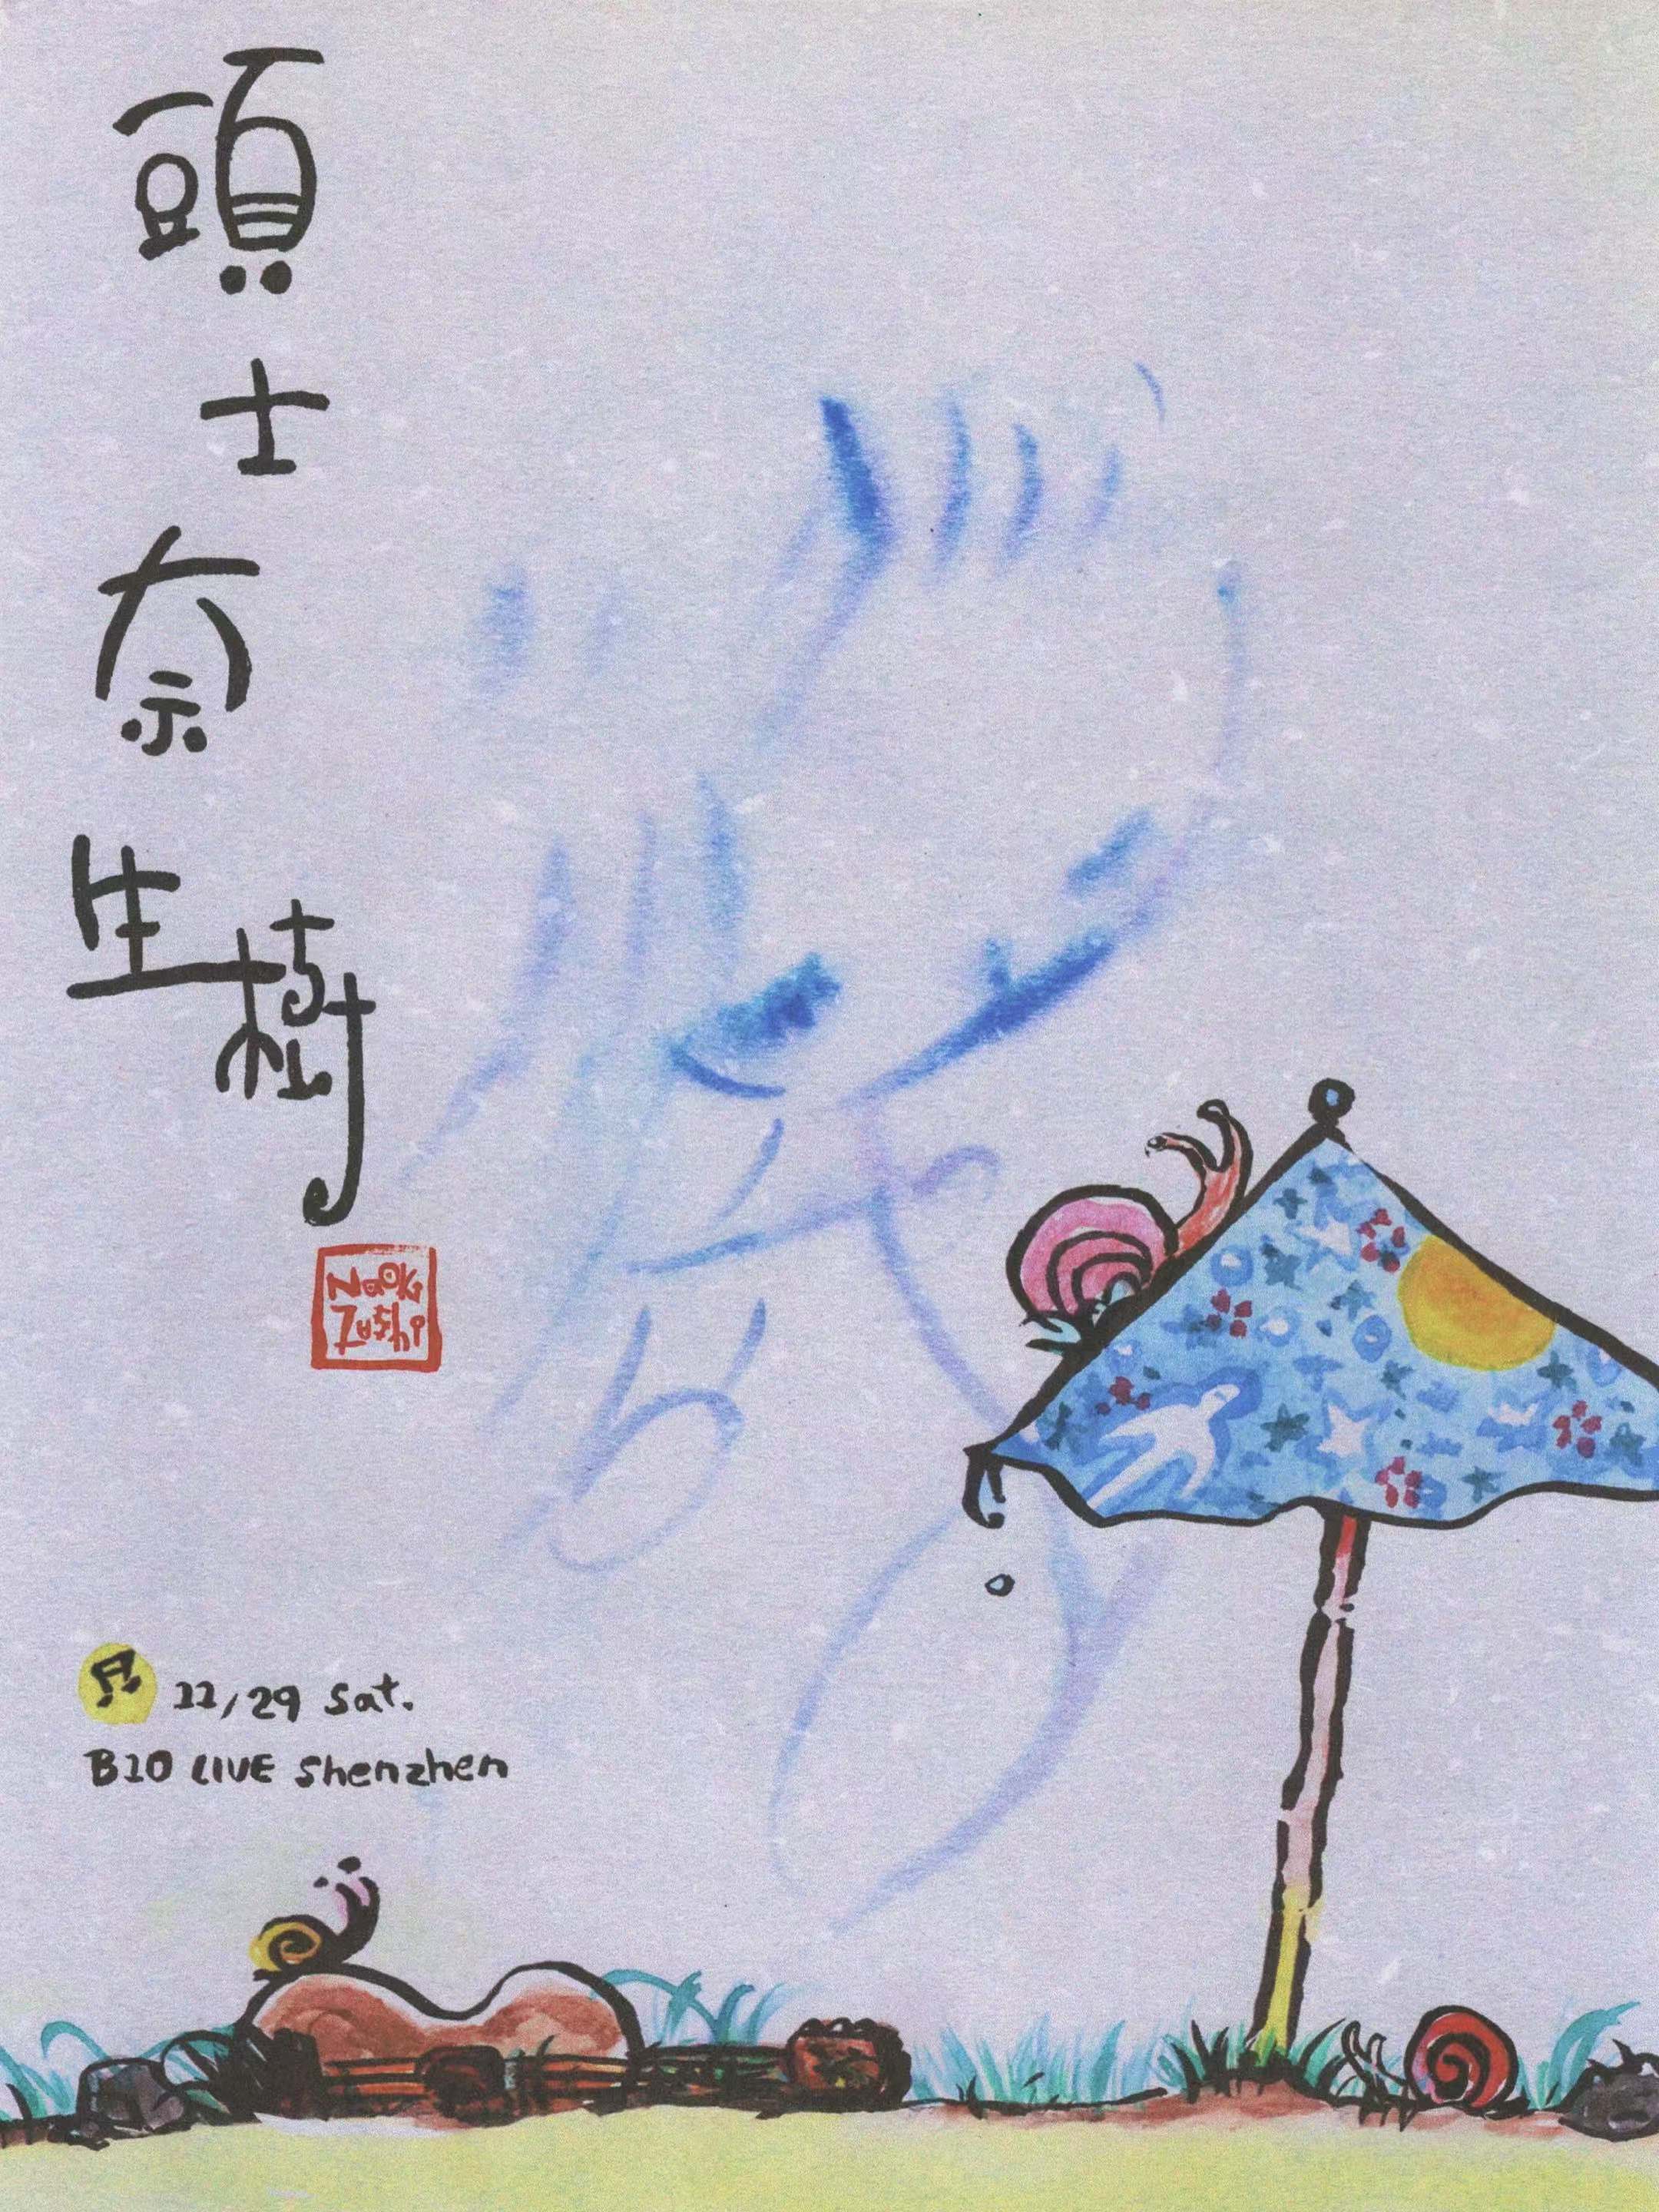 頭士奈生樹
Naoki
Zushi
11/29 Sat.
B10 LIVE Shenzhen